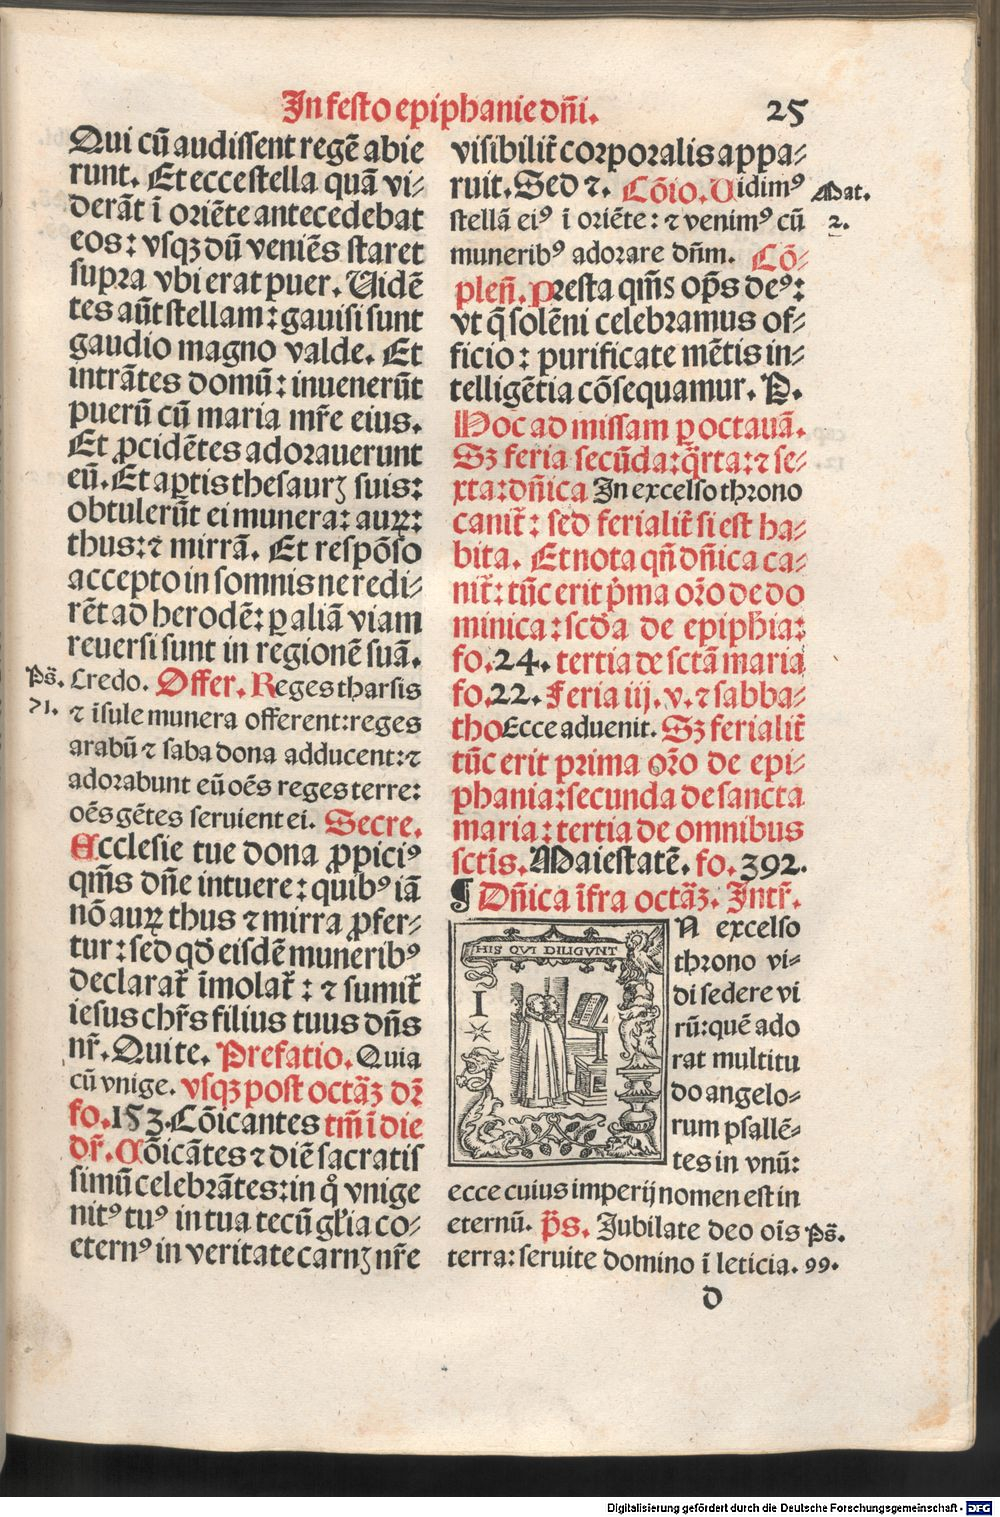 In festo epiphanie dñi.
25
Qui cũ audissent regẽ abie
runt. Et ecce stella quã vi-
derãt ĩ oriẽte antecedebat
eos: vsqꝫ dũ veniẽs staret
supra vbi erat puer. Uidẽ
tes aũt stellam: gauisi sunt
gaudio magno valde. Et
intrãtes domũ: inuenerũt
puerũ cũ maria mr̃e eius.
Et ꝓcidẽtes adorauerunt
eũ. Et aꝑtis thesaurꝫ suis:
obtulerũt ei munera: auꝝ:
thus: ⁊ mirrã. Et respõso
accepto in somnis ne redi-
rẽt ad herodẽ: ꝑ aliã viam
reuersi sunt in regionẽ suã.
Ps̃. Credo. Offer. Reges tharsis
71. ⁊ ĩsule munera offerent: reges
arabũ ⁊ saba dona adducent: ⁊
adorabunt eũ oẽs reges terre:
oẽs gẽtes seruient ei. Secre.
Ecclesie tue dona ꝓpiciꝰ
qm̃s dñe intuere: quibꝰ iã
nõ auꝝ thus ⁊ mirra ꝓfer-
tur: sed qđ eisdẽ muneribꝰ
declarat̃ ĩmolat̃: ⁊ sumit̃
iesus chr̃s filius tuus dñs
nr̃. Quite. Prefatio. Quia
cũ vnige. vsqꝫ post octãꝫ dr̃
fo. 153. Cõicantes tm̃ ĩ die
dr̃. Cõicãtes ⁊ diẽ sacratis
simũ celebrãtes: in q̊ vnige
nitꝰ tuꝰ in tua tecũ gl̃ia co-
eternꝰ in veritate carnꝫ nr̃e
visibilit̃ corporalis appa-
ruit. Sed ⁊. Cõio. Uidimꝰ Mat.
stellã eiꝰ ĩ oriẽte: ⁊ venimꝰ cũ 2.
muneribꝰ adorare dñm. Cõ-
pleñ. Presta qm̃s op̃s deꝰ:
vt q̃ solẽni celebramus of-
ficio: purificate mẽtis in-
telligẽtia cõsequamur. P.
Hoc ad missam ꝑ octauã.
Sꝫ feria secũda: q̃rta: ⁊ se-
xta: dñica In excelso throno
canit̃: sed ferialit̃ si est ha-
bita. Et nota qñ dñica ca-
nit̃: tũc erit p̃ma or̃o de do
minica: scđa de epiph̃ia:
fo. 24. tertia de sctã maria
fo. 22. Feria iij. v. ⁊ sabba-
tho Ecce aduenit. Sꝫ ferialit̃
tũc erit prima or̃o de epi-
phania: secunda de sancta
maria: tertia de omnibus
sctĩs. Maiestatẽ. fo. 392.
¶ Dñica ĩfra octãꝫ. Intr̃.
HIS QVI DILIGVNT
I
N excelso
throno vi-
di sedere vi
rũ: quẽ ado
rat multitu
do angelo-
rum psallẽ-
tes in vnũ:
ecce cuius imperij nomen est in
eternũ. p̃s. Iubilate deo oĩs Ps̃.
terra: seruite domino ĩ leticia. 99.
d
Digitalisierung gefördert durch die Deutsche Forschungsgemeinschaft - DFG